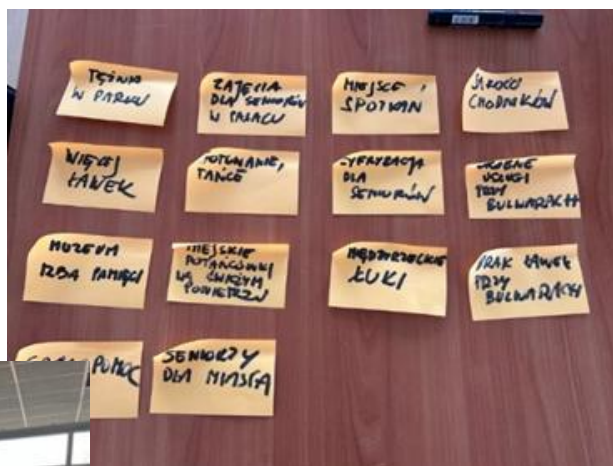 TĘŻNIA
W PARKU
ZAJĘCIA
DLA SENIORÓW
W PAŁACU
MIEJSCE
SPOTKAŃ
CHODNIKÓW
WIĘCEJ
ŁAWEK
TAŃCE
CYFRYZACJA
DLA
SENIORÓW
USŁUGI
PRZY
BULWARACH
MUZEUM
IZBA PAMIĘCI
MIEJSKIE
POTAŃCÓWKI
NA ŚWIEŻYM
POWIETRZU
MIĘDZYRZECKIE
ŁUKI
BRAK ŁAWEK
PRZY
BULWARACH
POMOC
SENIORZY
DLA MIASTA